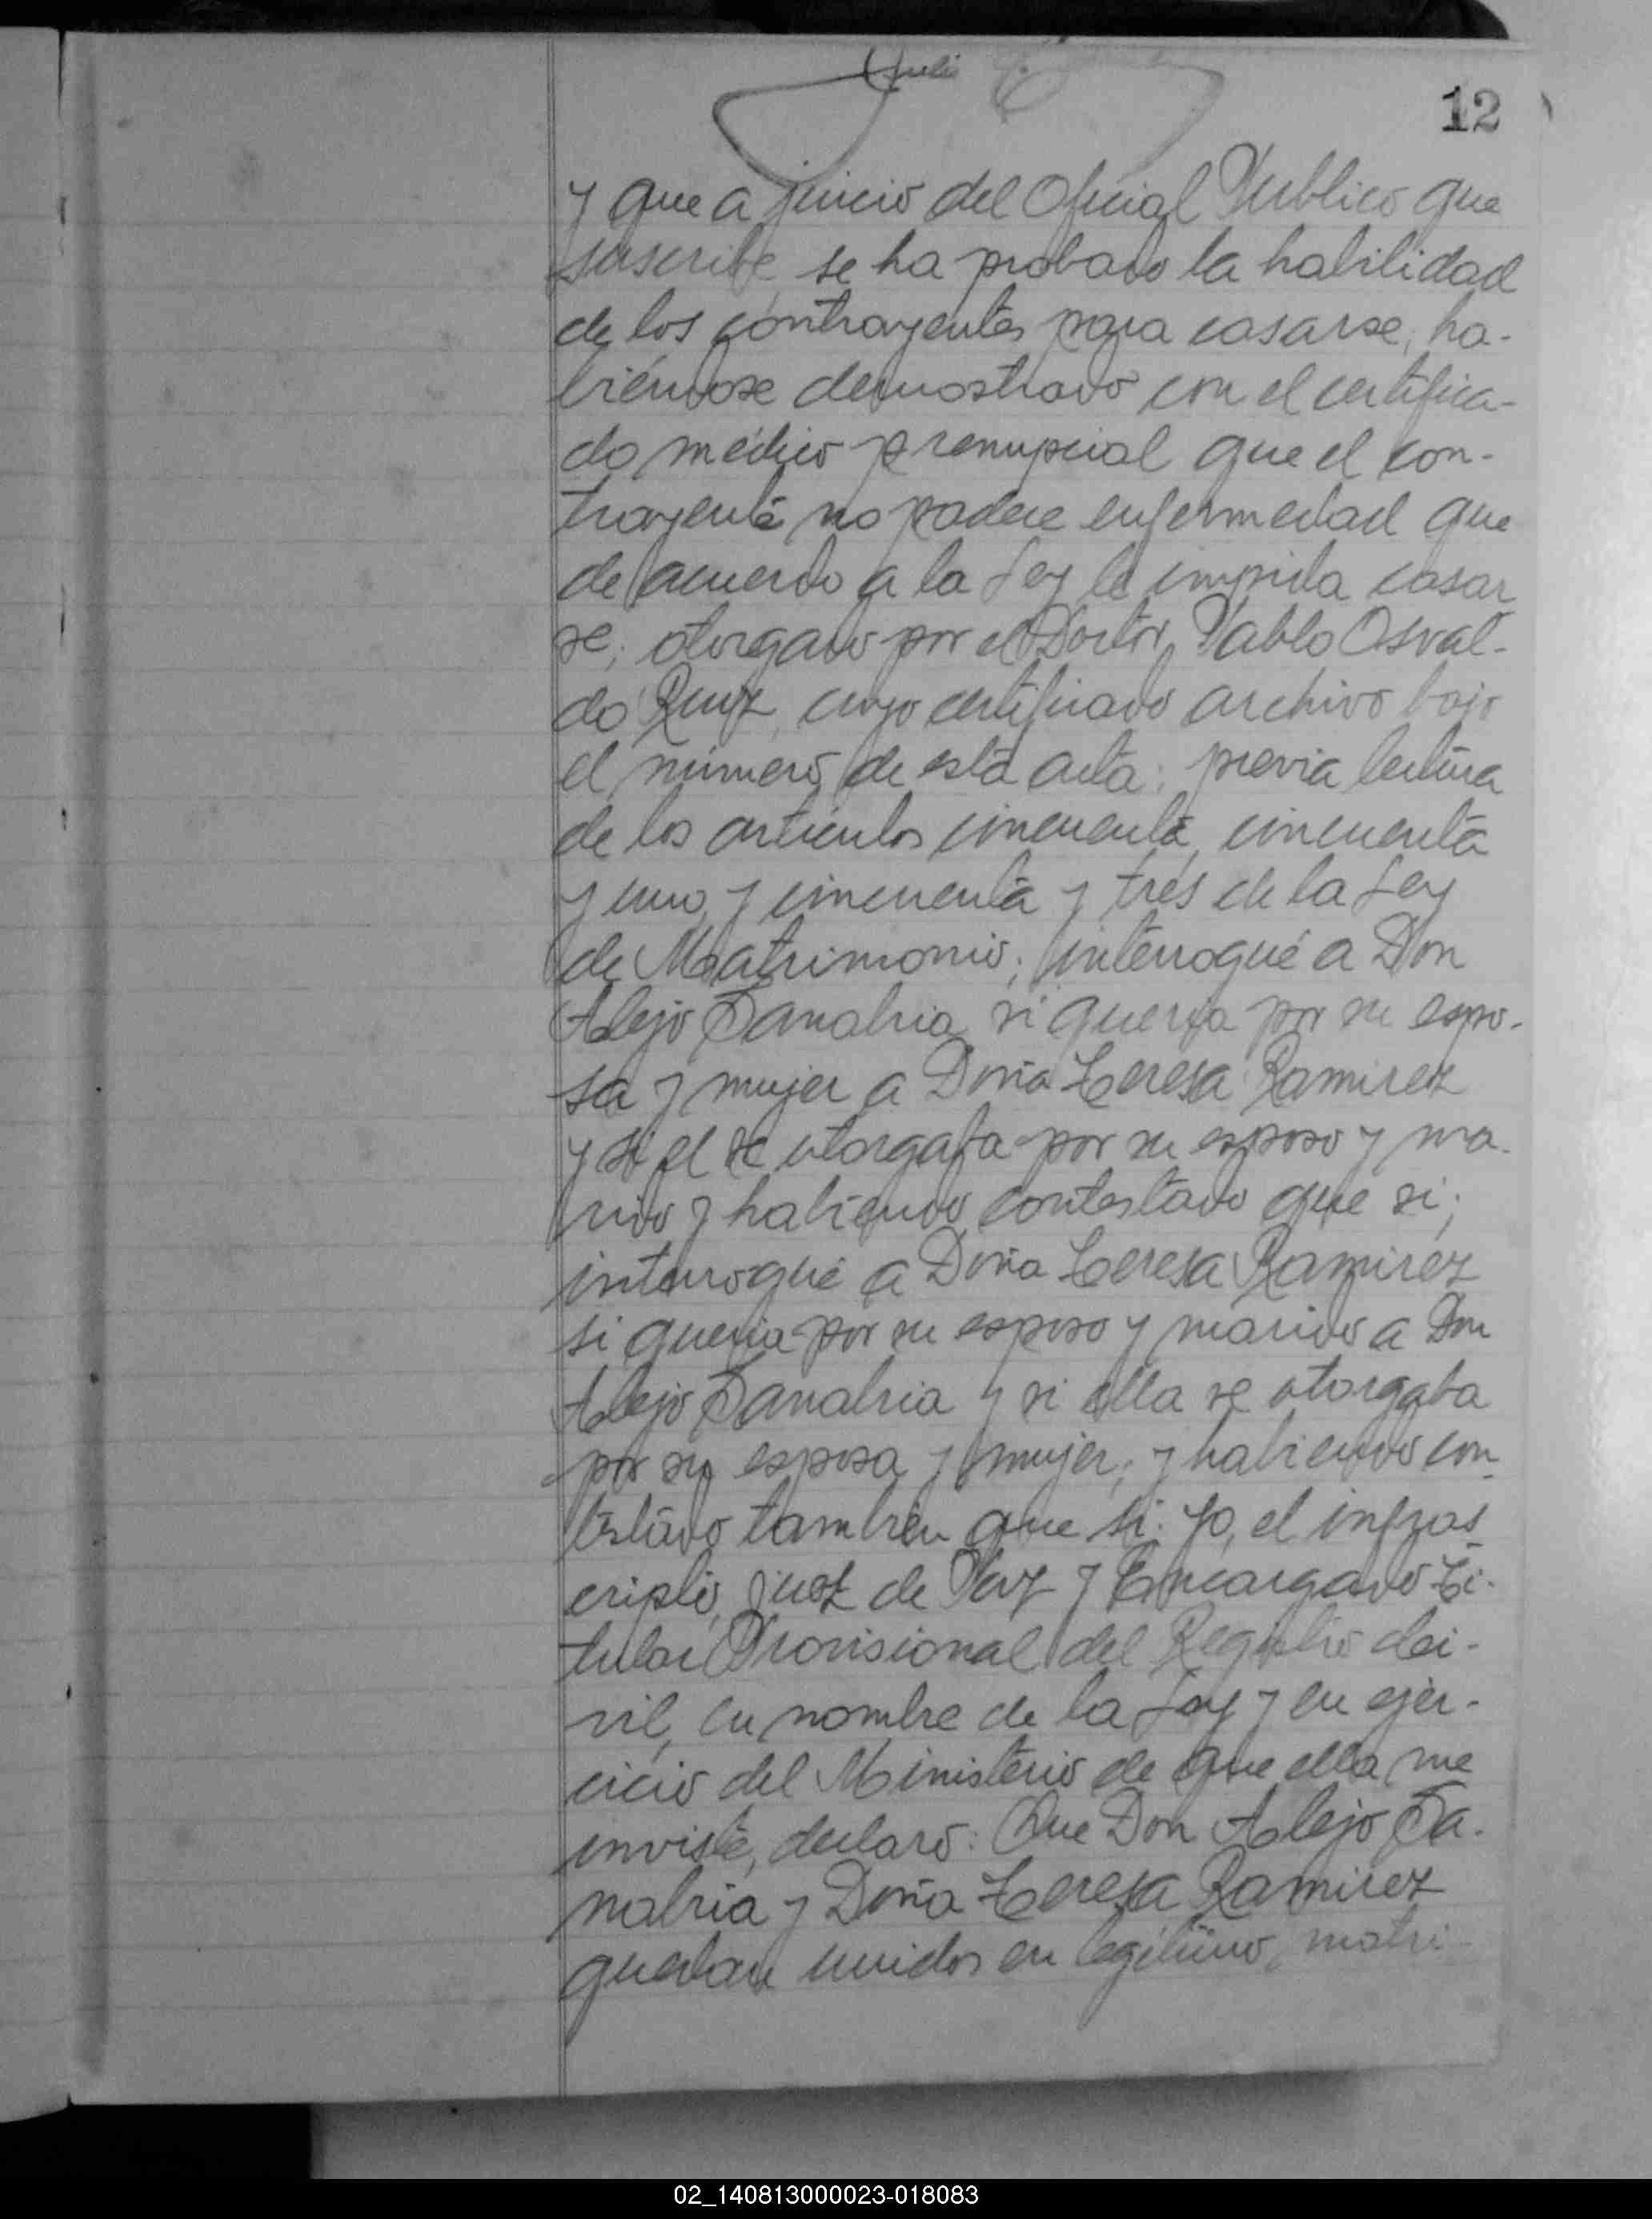 12
y que a juicio del Oficial Publico que
suscribe, se ha probado la habilidad
de los contrayentes para casarse, ha-
biéndose demostrado con el certifica-
do médico prenupcial que el con-
trayente no padece enfermedad que
de acuerdo a la Ley le impida casar
se; otorgado por el Doctor Pablo Osval-
do Ruiz, cuyo certificado archivo bajo
el número de esta acta; previa lectura
de los artículos cincuenta, cincuenta
y uno, y cincuenta y tres de la Ley
de Matrimonio; interrogué a Don
Alejo Sanabria si queria por su espo-
sa y mujer a Doña Teresa Ramirez
y si el se otorgaba por su esposo y ma-
rido y habiendo contestado que si;
interrogué a Doña Teresa Ramirez
si queria por su esposo y marido a Don
Alejo Sanabria y si ella se otorgaba
por su esposa y mujer; y habiendo con
testado tambien que si: Yo, el infras
cripto, Juez de Paz y Encargado Ti-
tular Provisional del Registro Ci-
vil, en nombre de la Ley y en ejer-
cicio del Ministerio de que ella me
inviste, declaro: Que Don Alejo Sa-
nabria y Doña Teresa Ramirez
quedan unidos en legítimo matri-
02_140813000023-018083